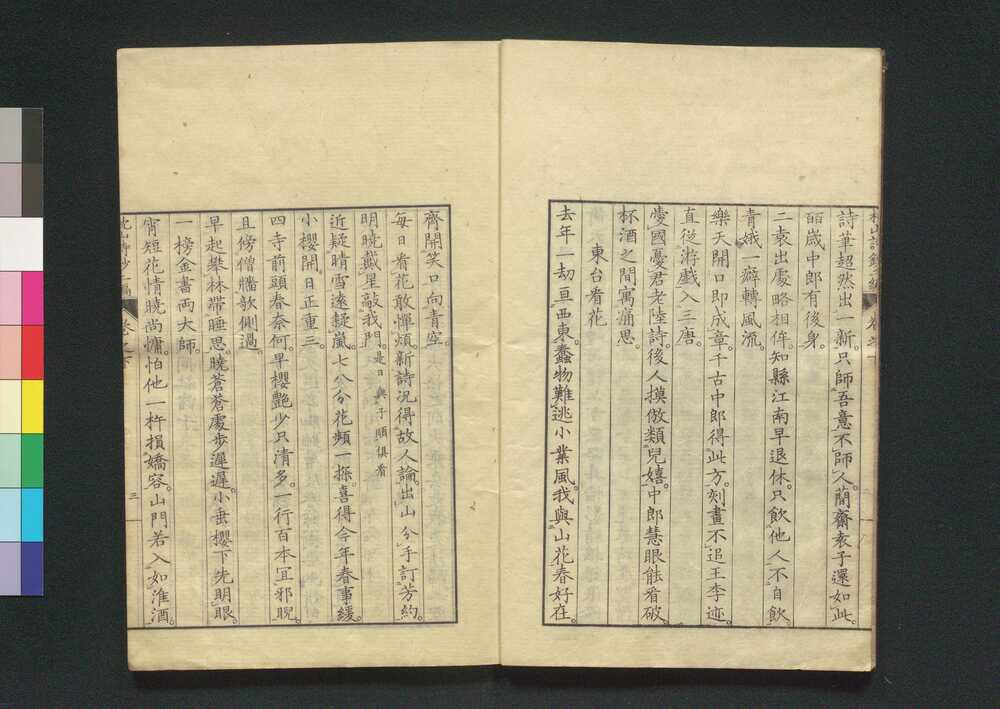 詩筆超然出一新。只師吾意不師人。蘭齋袁子還如此。
丽嵗中郎有後身。
二袁出處略相侔。知縣江南早退休。只飲他人不自飲。
青娥一癖轉風流。
樂天開口即成章。千古中郎得此方。刻畫不追王李迹。
直從游戲入三唐。
愛國憂君老陸詩。後人摸倣類兒嬉。中郎慧眼能看破。
杯酒之間寓痛思。
東台看花
去年一劫亘西東。蠢物難逃小業風。我與山花春好在。
齊開笑口向青空。
每日看花敢憚煩。新詩況得故人論。出山分手訂芳約。
明曉戴星敲我門。是日與子順俱看
近疑晴雪遠疑嵐。七分分花頻一探。喜得今年春事緩。
小櫻開日正重三。
四寺前頭春奈何。早櫻艷少只清多。一行百本冝邪睨。
且傍僧牆欹側過。
早起攀林帶睡思。曉蒼蒼處步遲遲。小垂櫻下先明眼。
一榜金書両大師。
宵短花情曉尚慵。怕他一杵損嬌容。山門若入如淮酒。
三